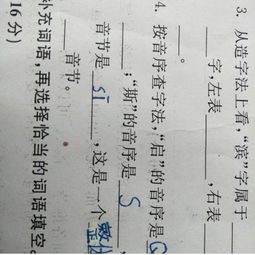 3. 从造字法上看，“滨”字属于____
____字，左表____，右表
____。
4. 按音序查字法，“启”的音序是Q
____；“斯”的音序是 S ，
音节是 sī ，这是一个整体
____音节。
补充词语，再选择恰当的词语填空。
16分）